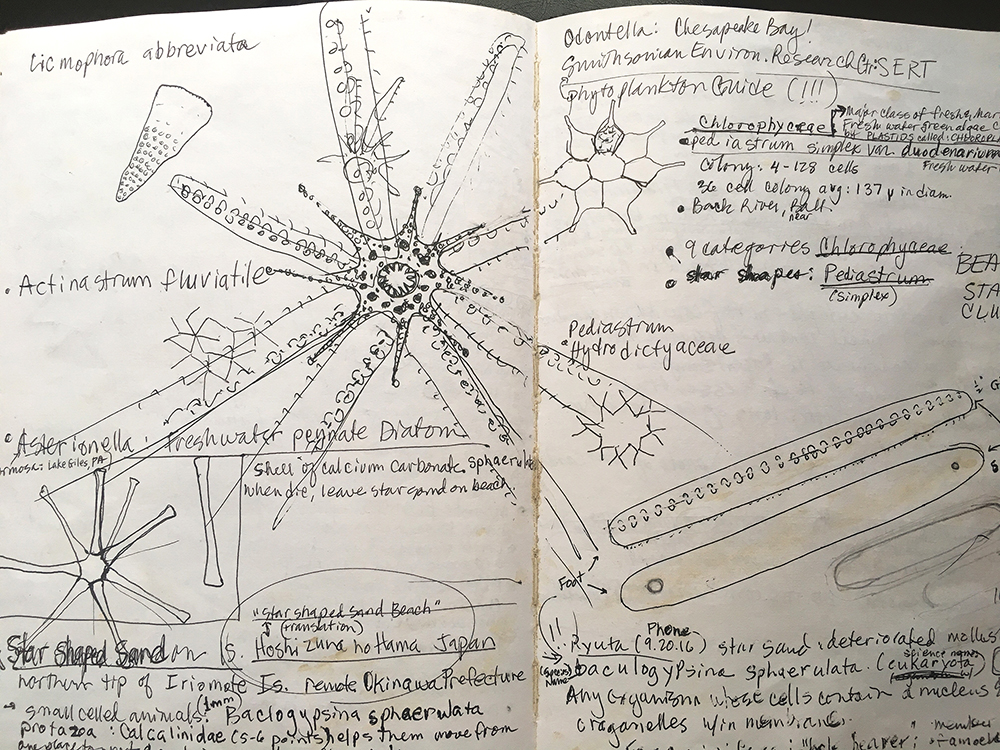 Licmophora abbreviata
• Actinastrum fluviatile
• Asterionella: Freshwater pennate Diatom
Lake Giles, PA
Shell of calcium carbonate, sphaerula
when die, leave star sand on beach
"Star shaped sand Beach"
(translation)
Star Shaped Sand on S. Hoshizuna no Hama Japan
northern tip of Iriomote Is. remote Okinawa Prefecture
small celled animals: (1mm) Baclogypsina sphaerulata
protazoa: Calcalinidae (5-6 points helps them move from
Odontella: Chesapeake Bay!
Smithsonian Environ. Research Ctr: SERT
Phytoplankton Guide (!!!)
Chlorophyceae Major class of fresh,
Fresh water green algae
PLASTIDS called:
• pediastrum simplex var. duodenarium
Fresh water
Colony: 4-128 cells
36 cell colony avg: 137 µ in diam.
• Back River, near Balt.
• 9 categorres Chlorophyceae
• star shapes: Pediastrum
(simplex)
BEA
STA
CLU
Pediastrum
• Hydrodictyaceae
Foot
!!
Phone
Ryuta (9.20.16) star sand: deteriorated mollus
(species Name) baculogypsina sphaerulata (eukaryota)
science name
Any organism whose cells contain a nucleus &
oraganelles w/in membranes.